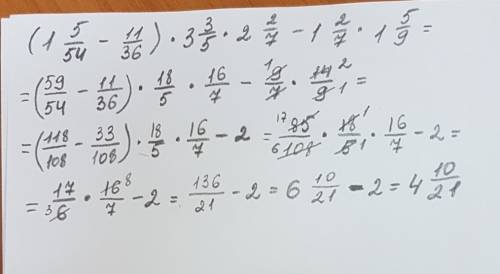 (1 5/54 - 11/36) · 3 3/5 · 2 2/7 - 1 2/7 · 1 5/9 =
= (59/54 - 11/36) · 18/5 · 16/7 - 1 9/7 · 14 2/9 1 =
= (118/108 - 33/108) · 18/5 · 16/7 - 2 = 17 85/6 108 · 18 1/5 1 · 16/7 - 2 =
= 17/3 6 · 16 8/7 - 2 = 136/21 - 2 = 6 10/21 - 2 = 4 10/21